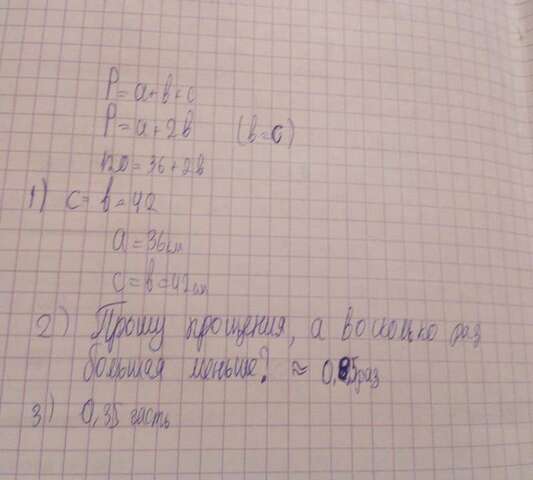 P = a + b + c
P = a + 2b (b = c)
120 = 36 + 2b
1) c = b = 42
a = 36 см
c = b = 42 см
2) Прошу прощения, а во сколько раз
большая меньше? ≈ 0,85 раз
3) 0,35 часть